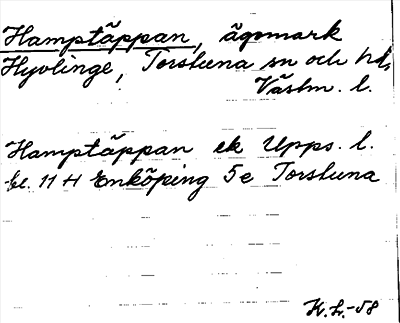 Hamptäppan, ägomark
Hyvlinge, Torstuna sn och hd,
Västm. l.
Hamptäppan ek Upps. l.
bl. 11 H Enköping 5e Torstuna
K.L.-58